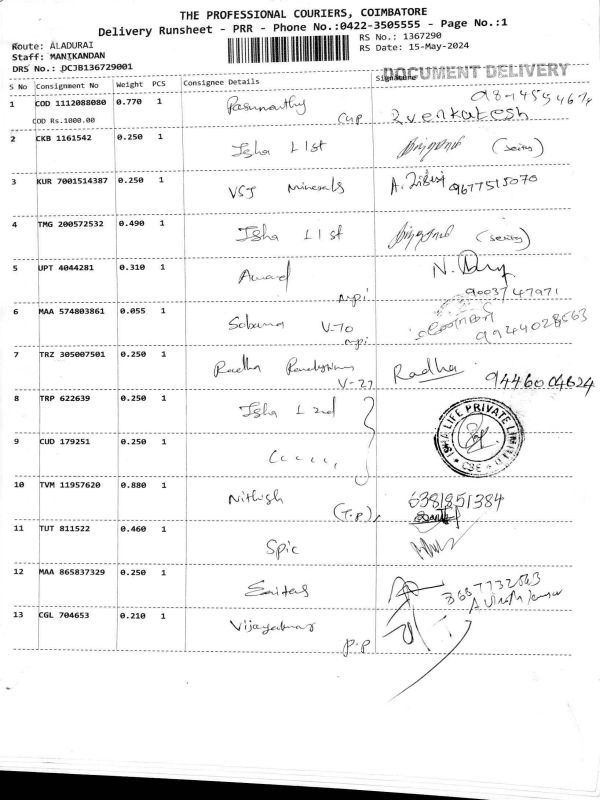 THE PROFESSIONAL COURIERS, COIMBATORE
Delivery Runsheet - PRR - Phone No.:0422-3505555 - Page No.:1
Route: ALADURAI
RS No.: 1367290
Staff: MANIKANDAN
RS Date: 15-May-2024
DRS No.: DCJB136729001
DOCUMENT DELIVERY
S No Consignment No Weight PCS Consignee Details Signature
1 COD 1112088080 0.770 1
COD Rs.1000.00
2 CKB 1161542 0.250 1 Isha L 1st
3 KUR 7001514387 0.250 1 VSJ Minerals 9677515070
4 TMG 200572532 0.490 1 Isha L 1st
5 UPT 4044281 0.310 1 9003747971
6 MAA 574803861 0.055 1 Sobana V-70 9944028563
7 TRZ 305007501 0.250 1 Radha V-27 Radha 9446004624
8 TRP 622639 0.250 1 Isha L 2nd
ISHA LIFE PRIVATE LIMITED CBE
9 CUD 179251 0.250 1
10 TVM 11957620 0.880 1 Nithish (T.P) 6381851384
11 TUT 811522 0.460 1 Spic
12 MAA 865837329 0.250 1
13 CGL 704653 0.210 1 P.P